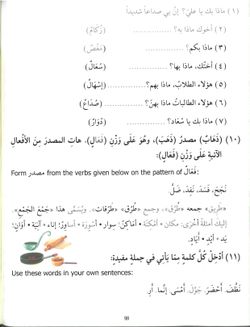 (١) ماذا بك يا عليّ؟ إنّ بي صداعاً شديداً
(٢) أخوك ماذا به؟ (زُكامٌ)
(٣) ماذا بكم؟ (مَغَصٌ)
(٤) أختُك، ماذا بها؟ (سُعَالٌ)
(٥) هؤلاء الطلابُ، ماذا بهم؟ (إِسْهَالٌ)
(٦) هؤلاء الطالباتُ ماذا بهنَّ؟ (صُدَاعٌ)
(٧) ماذا بك يا سُعَاد؟ (دُوَارٌ)
(١٠) (ذَهَابٌ) مصدرُ (ذَهَبَ)، وهُوَ عَلَى وَزْنِ (فَعَالٍ). هاتِ المصدرَ مِنَ الأفعالِ
الآتيةِ عَلَى وَزْنِ (فَعَالٍ):
Form مصدر from the verbs given below on the pattern of فَعَالٌ:
نَجَحَ، فَسَدَ، نَفِدَ، ضَلَّ
«طريق» جمعه «طُرُق»، وجمع «طُرُق» «طُرُقات». ويُسَمَّى هذا «جَمْعَ الجَمْعِ».
إليك أمثلة أخرى: مكان: أمْكِنَة: أماكنُ؛ سِوار: أسْوِرَة: أساوِرُ؛ إناء: آنِيَة: أوَانٍ؛
يَد: أيْدٍ: أيَادٍ.
(١١) أدْخِلْ كُلَّ كلمةٍ مِمّا يَأتي في جملةٍ مفيدة:
Use these words in your own sentences:
نَظَّفَ، أحْضَرَ، جَرْل، أمْسَى، إنّما، أو